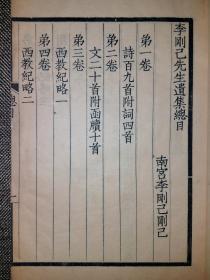 李剛己先生遺集總目
南宮李剛己剛己
第一卷
詩百九首附詞四首
第二卷
文二十首附函牘十首
第三卷
西教紀略一
第四卷
西教紀略二